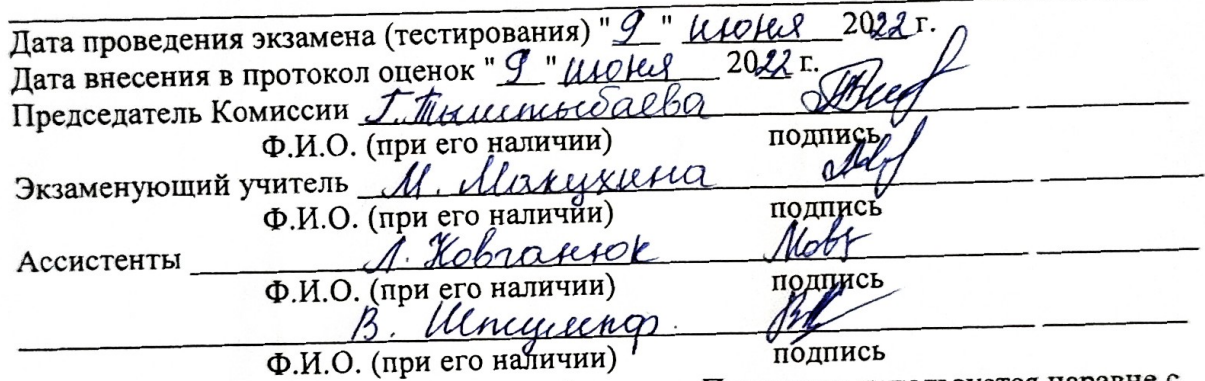 Дата проведения экзамена (тестирования) " 9 " июня 2022 г.
Дата внесения в протокол оценок " 9 " июня 2022 г.
Председатель Комиссии Г. Тыштыбаева
Ф.И.О. (при его наличии) подпись
Экзаменующий учитель М. Макухина
Ф.И.О. (при его наличии) подпись
Ассистенты Л. Ковганюк
Ф.И.О. (при его наличии) подпись
В.
Ф.И.О. (при его наличии) подпись
наравне с